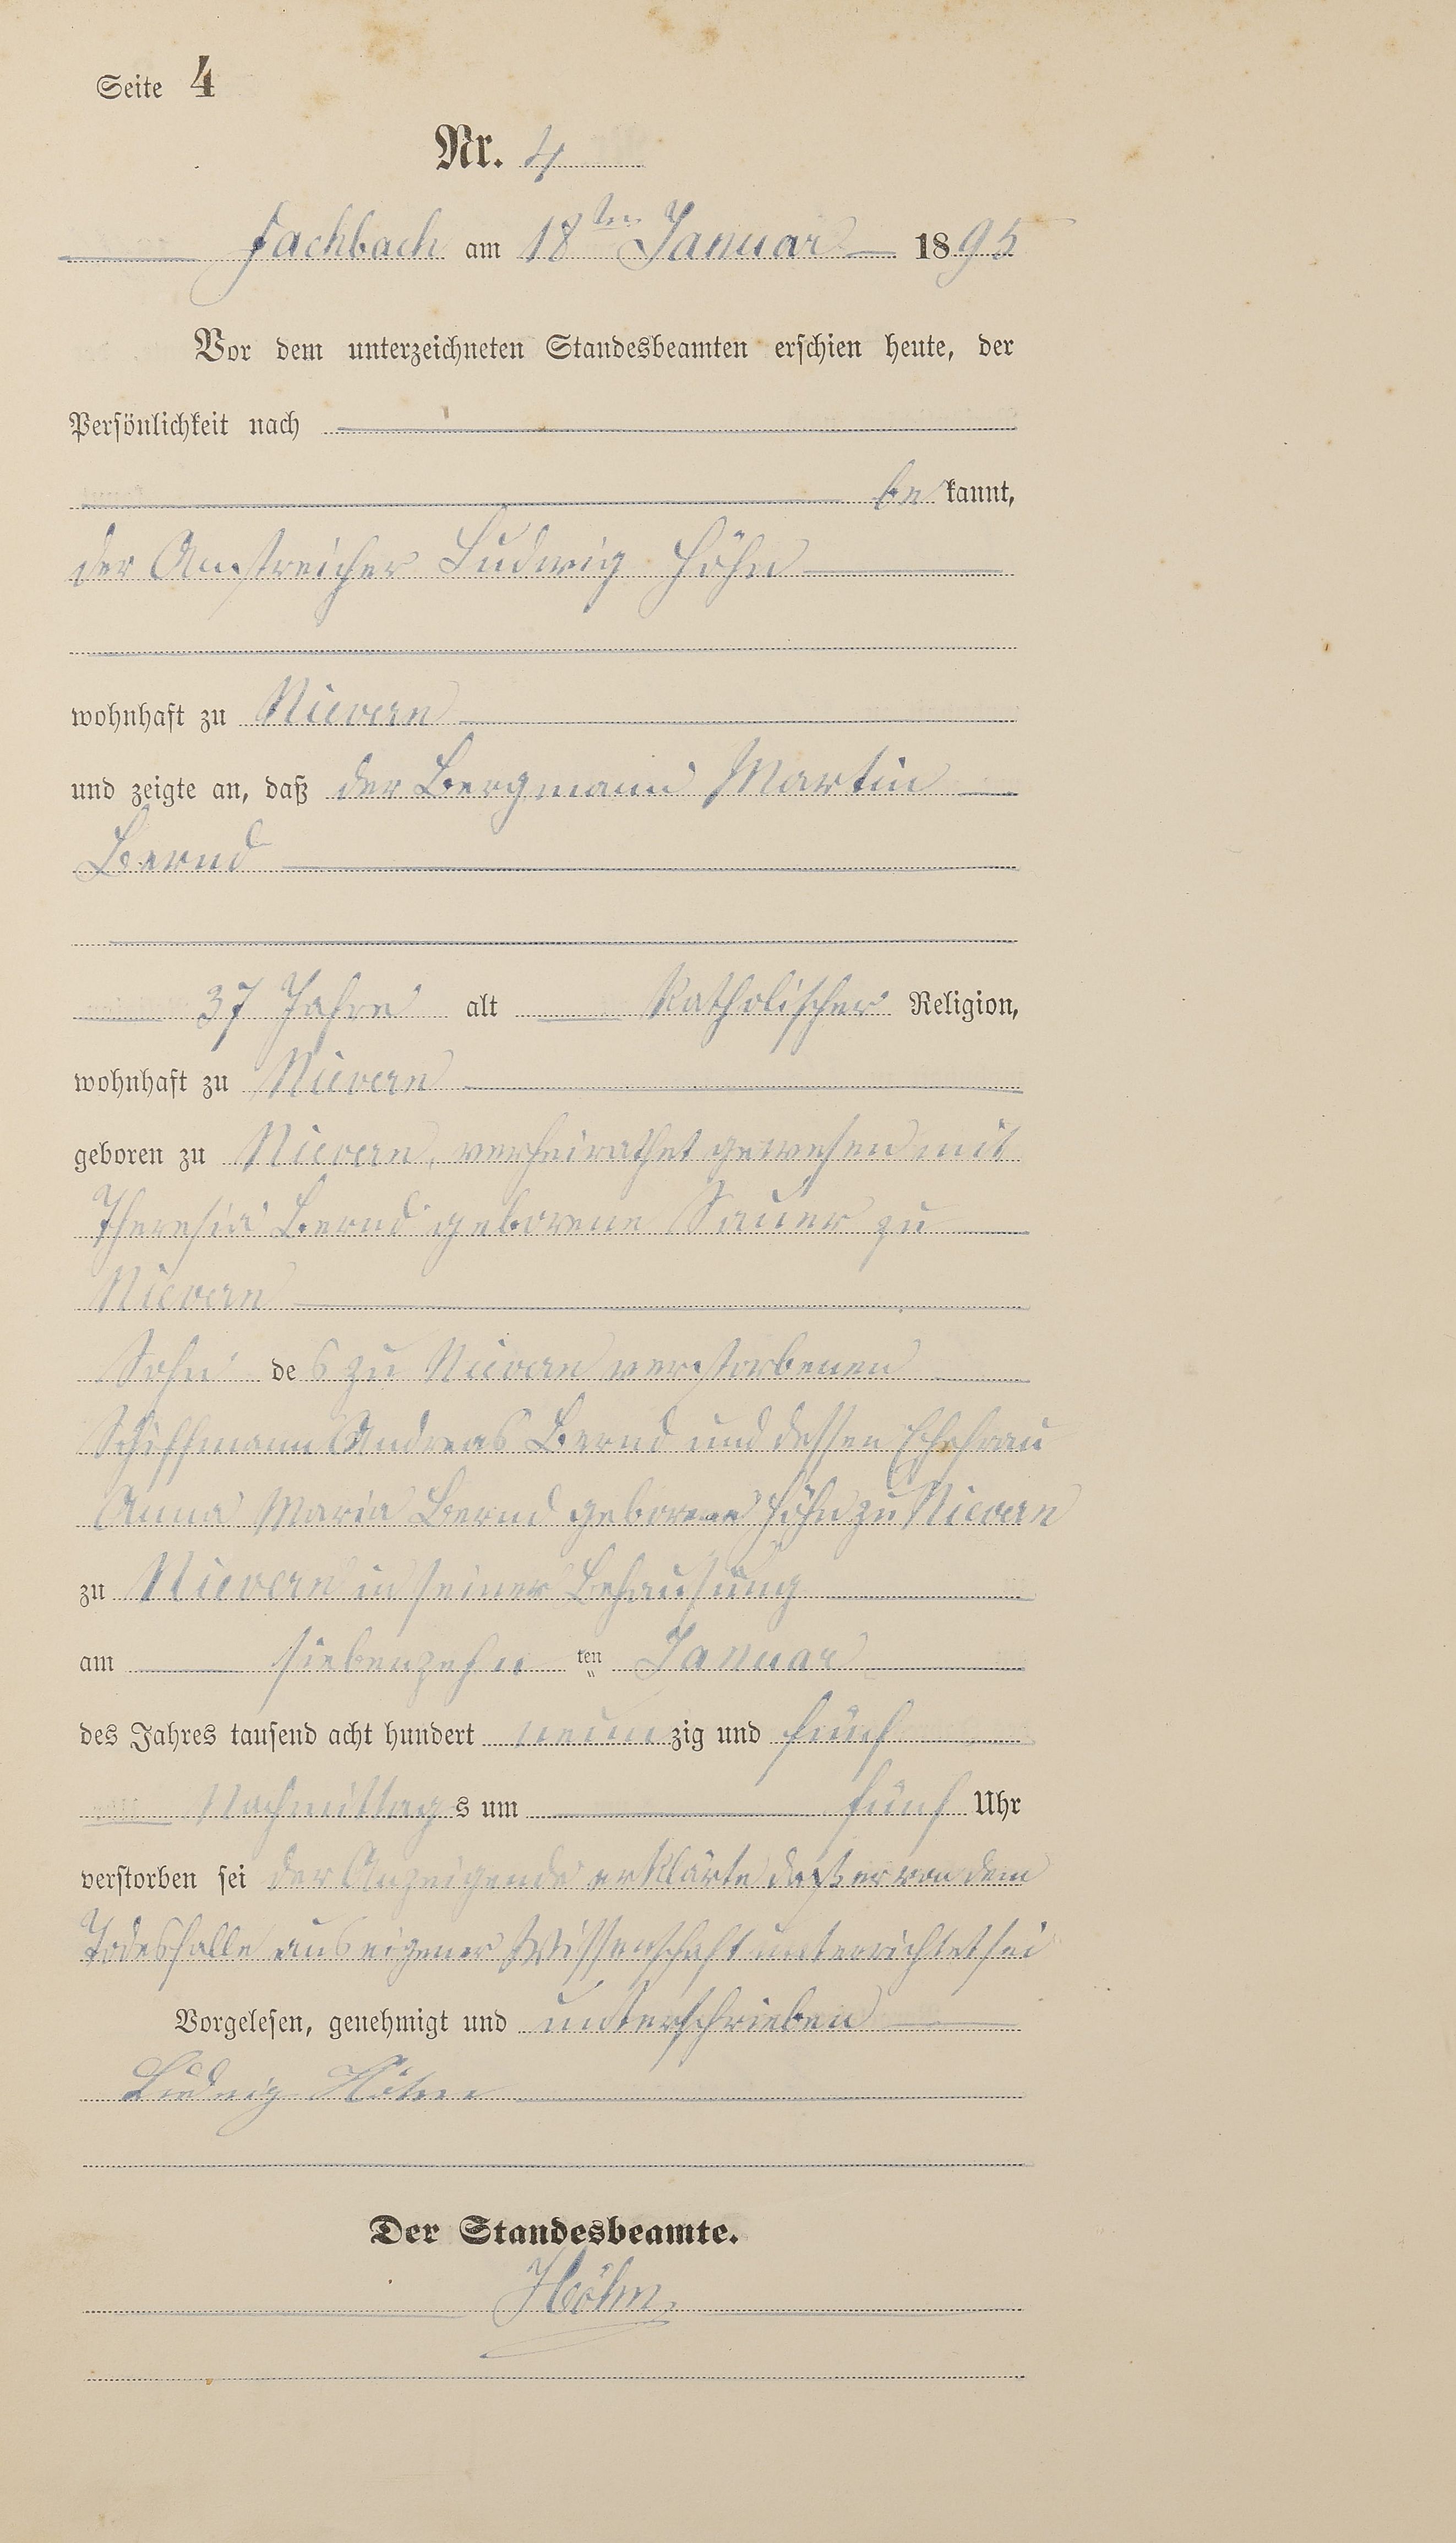 Seite 4
Nr. 4
Fachbach am 18ten Januar 1895
Vor dem unterzeichneten Standesbeamten erschien heute, der
Persönlichkeit nach
be kannt,
der Anstreicher Ludwig Höhn
wohnhaft zu Nievern
und zeigte an, daß der Bergmann Martin
Bernd
37 Jahre alt katholischer Religion,
wohnhaft zu Nievern
geboren zu Nievern, verheirathet gewesen mit
Theresia Bernd geborene Sauer zu
Nievern
Sohn des zu Nievern verstorbenen
Schiffmann Andreas Bernd und dessen Ehefrau
Anna Maria Bernd geborene Höhn zu Nievern
zu Nievern in seiner Behausung
am siebenzehn ten Januar
des Jahres tausend acht hundert neunzig und fünf
Nachmittags um fünf Uhr
verstorben sei der Anzeigende erklärte daß er von dem
Todesfalle aus eigener Wissenschaft unterrichtet sei
Vorgelesen, genehmigt und unterschrieben
Ludwig Höhn
Der Standesbeamte.
Höhn